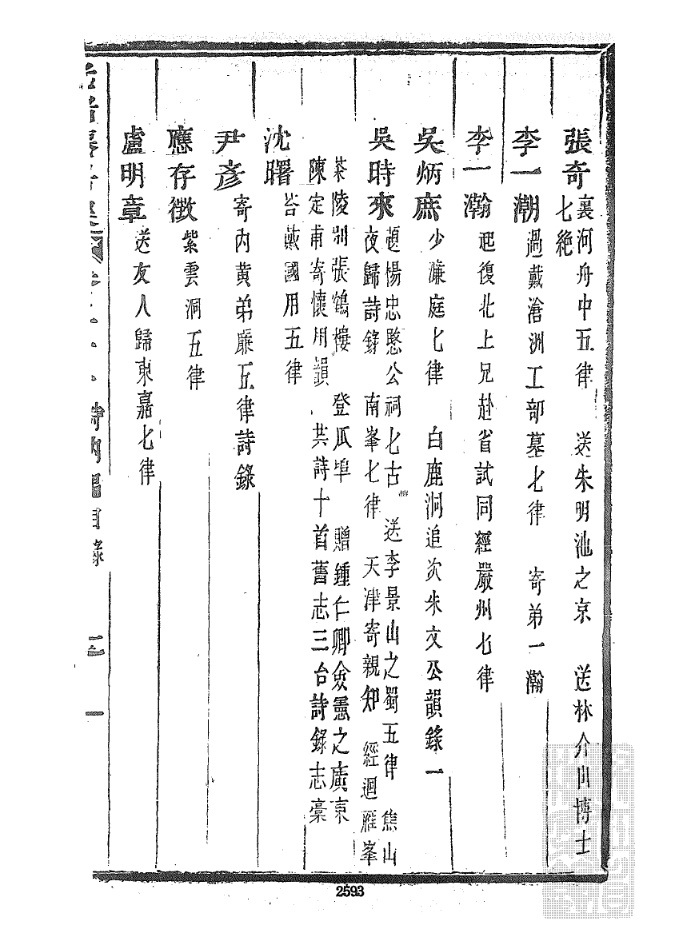 張奇 裏河舟中五律 送朱明池之京 送林介山博士
七絶
李一潮 過戴滄洲工部墓七律 寄弟一瀚
李一瀚 起復北上兄赴省試同經嚴州七律
吳炳庶 少濂庭七律 白鹿洞追次朱文公韻錄一
吳時來 題楊忠愍公祠七古 送李景山之蜀五律 焦山
夜歸詩錄 南峯七律 天津寄親知 經迴雁峯
茶陵別張鶴樓 登瓜埠 贈鍾仁卿僉憲之廣東
陳定甫寄懷用韻 共詩十首舊志三台詩錄志稾
沈曙 荅戴國用五律
尹彥 寄內黄弟廉五律詩錄
應存徵 紫雲洞五律
盧明章 送友人歸東嘉七律
詩內編目錄
2593